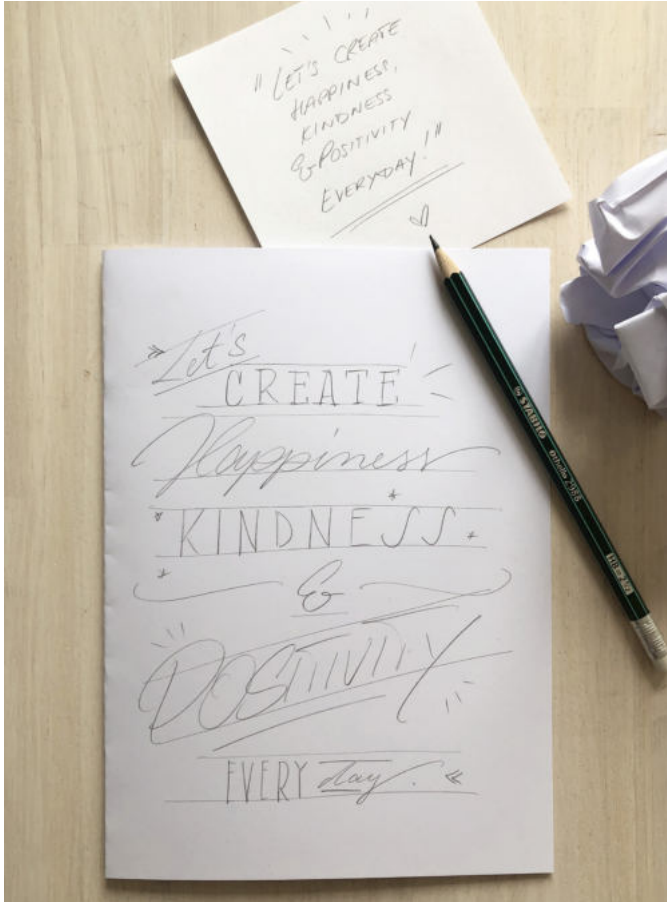 "LET'S CREATE
HAPPINESS,
KINDNESS
& POSITIVITY
EVERYDAY!"
Let's
CREATE
Happiness
KINDNESS
&
POSITIVITY
EVERY day.
by STABILO Othello 2988 HB=2½